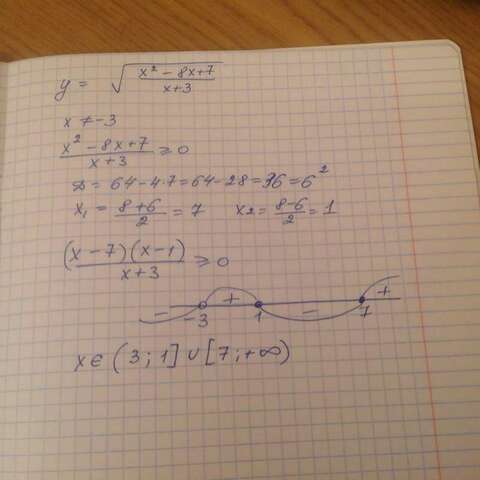 y = √((x² - 8x+7)/(x+3))
x ≠ -3
(x² - 8x+7)/(x+3) ≥ 0
D = 64-4·7=64-28=36=6²
x₁ = (8+6)/2 = 7 x₂ = (8-6)/2 = 1
((x-7)(x-1))/(x+3) ≥ 0
- + - +
-3 1 7
x ∈ (3;1] ∪ [7;+∞)